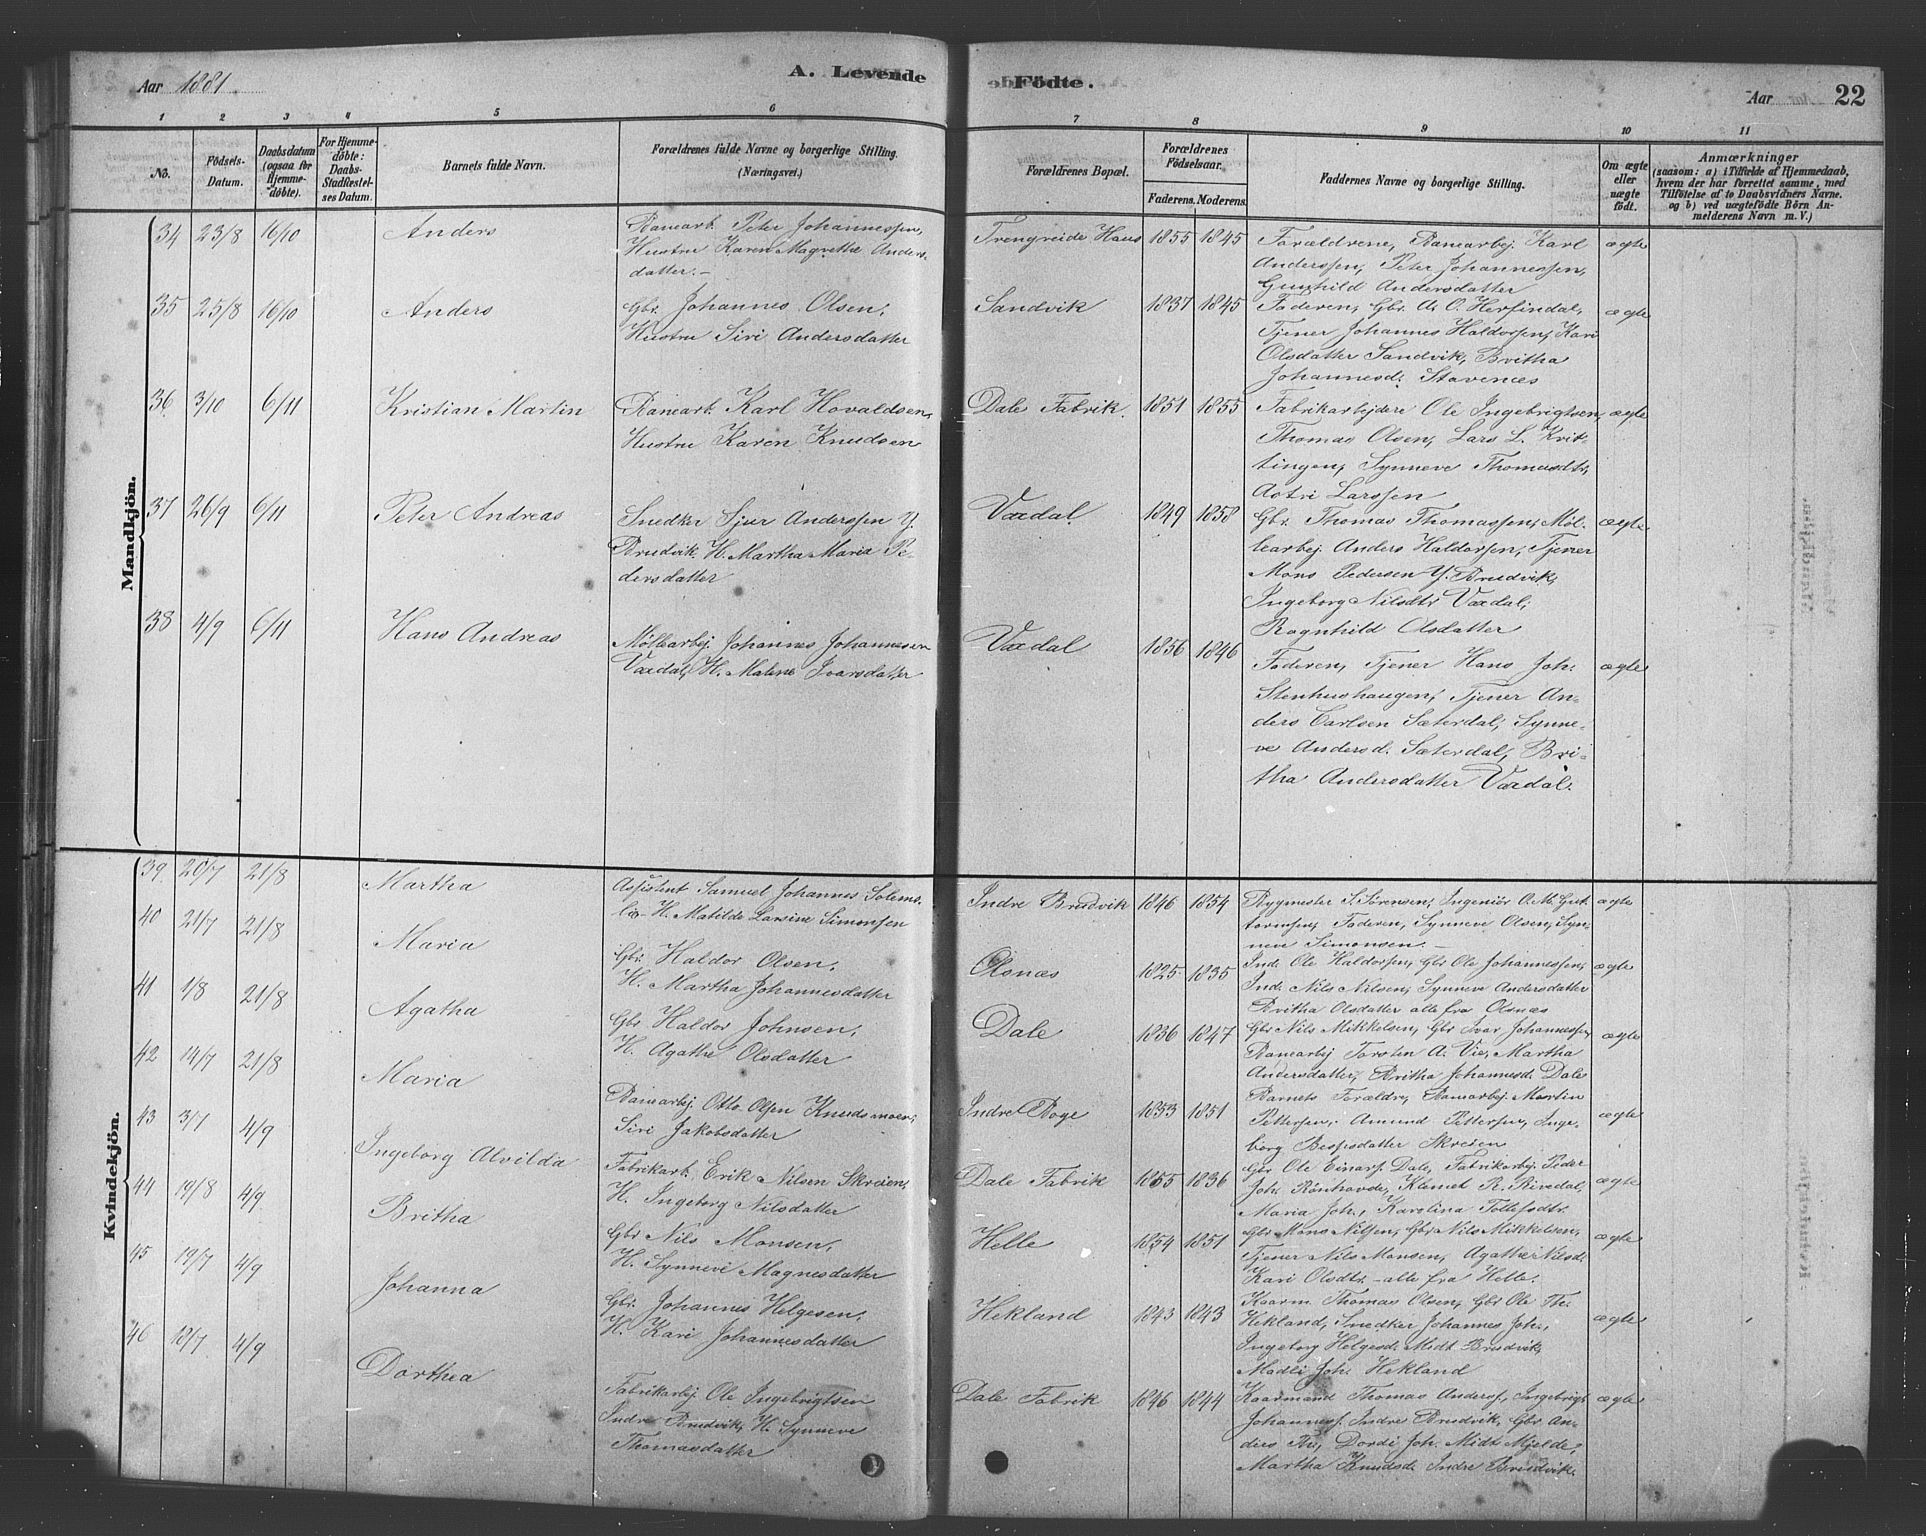 Aar 1881
A. Levende
Födte.
Aar
22
1 2 3 4 5 6 7 8 9 10 11
No.
Födsels-
Datum.
Daabsdatum
(ogsaa for
Hjemme-
döbte).
For Hjemme-
döbte:
Daabs-
Stadfæstel-
ses Datum.
Barnets fulde Navn.
Forældrenes fulde Navne og borgerlige Stilling.
(Næringsvei.)
Forældrenes Bopæl.
Forældrenes
Födselsaar.
Faderens. Moderens.
Faddernes Navne og borgerlige Stilling.
Om ægte
eller
uægte
födt.
Anmærkninger
(saasom: a) i Tilfælde af Hjemmedaab,
hvem der har forrettet samme, med
Tilföielse af to Daabsvidners Navne.
og b) ved uægtefödte Börn An-
melderens Navn m. V.)
Mandkjön.
34 23/8 16/10 Anders
Banearb. Peter Johannessen,
Hustru Karen Magrethe Anders-
datter.-
Trengreide Haus 1855 1845
Forældrene, Banearbej. Karl
Anderssen, Peter Johannessen,
Gunhild Andersdatter
ægte
35 25/8 16/10 Anders
Gbr. Johannes Olsen,
Hustru Siri Andersdatter
Sandvik 1837 1845
Faderen, Gbr. A. O. Herfindal,
Tjener Johannes Haldorsen, Kari
Olsdatter Sandvik, Britha
Johannesd. Stavenæs
ægte
36 3/10 6/11 Kristian Martin
Banearb. Karl Hovaldsen,
Hustru Karen Knudsen
Dale Fabrik. 1851 1855
Fabrikarbejdere Ole Ingebrigtsen,
Thomas Olsen, Lars L. Kvit-
tingen, Synneve Thomasdtr,
Astri Larssen
ægte
37 26/9 6/11 Peter Andreas
Snedker Sjur Anderssen Y.
Brudvik. H. Martha Maria Pe-
dersdatter
Vaxdal. 1849 1858
Gbr. Thomas Thomassen, Møl-
learbej. Anders Haldorsen, Tjener
Mons Pedersen Y. Brudvik,
Ingeborg Nilsdtr Vaxdal,
Ragnhild Olsdatter
ægte
38 4/9 6/11 Hans Andreas
Møllearbej. Johannes Johannesen
Vaxdal, H. Malene Ivarsdatter
Vaxdal 1856 1846
Faderen, Tjener Hans Joh.
Stenhushaugen, Tjener An-
ders Carlsen Sæterdal, Synne-
ve Andersd. Sæterdal, Bri-
tha Andersdatter Vaxdal.
ægte
Kvindekjön.
39 20/7 21/8 Martha
Assistent Samuel Johannes Solems-
lie- H. Matilde Larsine Simonsen
Indre Brudvik 1846 1854
Bygmester S. Sörensen, Ingeniör O. M. Gut-
tormsen, Faderen, Synneve Olsen, Syn-
neve Simonsen.-
ægte
40 21/7 21/8 Maria
Gbr. Haldor Olsen,
H. Martha Johannesdatter
Olsnæs 1825 1835
Ind. Ole Haldorsen, Gbr Ole Johannessen,
Ind. Nils Nilsen, Synneve Andersdatter
Britha Olsdatter alle fra Olsnæs
ægte
41 1/8 21/8 Agatha
Gbr Haldor Johnsen,
H. Agathe Olsdatter
Dale 1836 1847
Gbr Nils Mikkelsen, Gbr Ivar Johannessen,
Banearbej Torsten A. Vie, Martha
Andersdatter, Britha Johannesd. Dale
ægte
42 14/7 21/8 Maria
Banearbej. Otto Olsen Knudsmoen,
Siri Jakobsdatter
Indre Boge 1853 1851
Barnets Forældre, Banearbej. Martin
Pettersen, Amund Pettersen, Inge-
borg Bespsdatter Skreien
ægte
43 3/7 4/9 Ingeborg Alvilda
Fabrikarb. Erik Nilsen Skreien,
H. Ingeborg Nilsdatter
Dale Fabrik 1855 1836
Gbr Ole Einars. Dale, Fabrikarbej. Peder
Joh. Rönhovde, Klemet R. Rivedal,
Maria Joh., Karolina Tollefsdtr.
ægte
44 19/8 4/9 Britha
Gbr Nils Monsen,
H. Synneve Magnesdatter
Helle 1854 1851
Gbr Mons Nilsen, Gbr Nils Mikkelsen,
Tjener Nils Monsen, Agathe Nilsd.
Kari Olsdtr - alle fra Helle.
ægte
45 19/7 4/9 Johanna
Gbr. Johannes Helgesen,
H. Kari Johannesdatter
Hekland 1843 1843
Kaarm. Thomas Olsen, Gbr Ole Th.
Hekland, Snedker Johannes Joh.,
Ingeborg Helgesd. Midt Brudvik,
Madli Joh. Hekland
ægte
46 18/7 4/9 Dorthea
Fabrikarbej Ole Ingebrigtsen
Indre Brudvik, H. Synneve
Thomasdatter
Dale Fabrik 1846 1844
Kaarmand Thomas Anders., Ingebrigt
Johanness. Indre Brudvik, Gbr An-
ders Th., Dordi Joh. Midt Mjelde,
Martha Knudsd. Indre Brudvik.
ægte